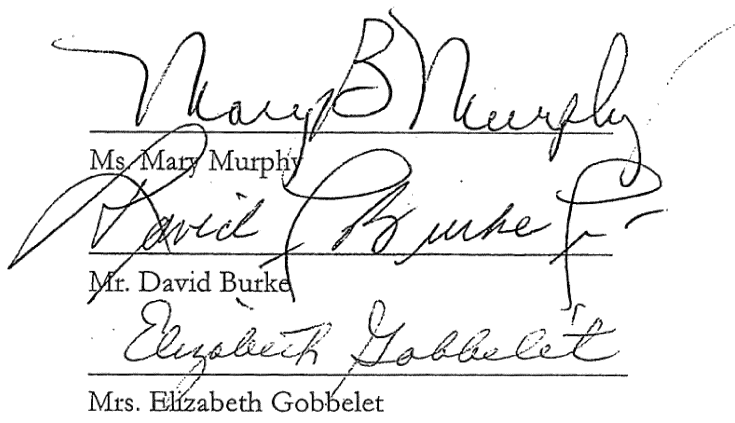 Mary B Murphy
Ms. Mary Murphy
David J Burke Jr
Mr. David Burke
Elizabeth Gobbelet
Mrs. Elizabeth Gobbelet